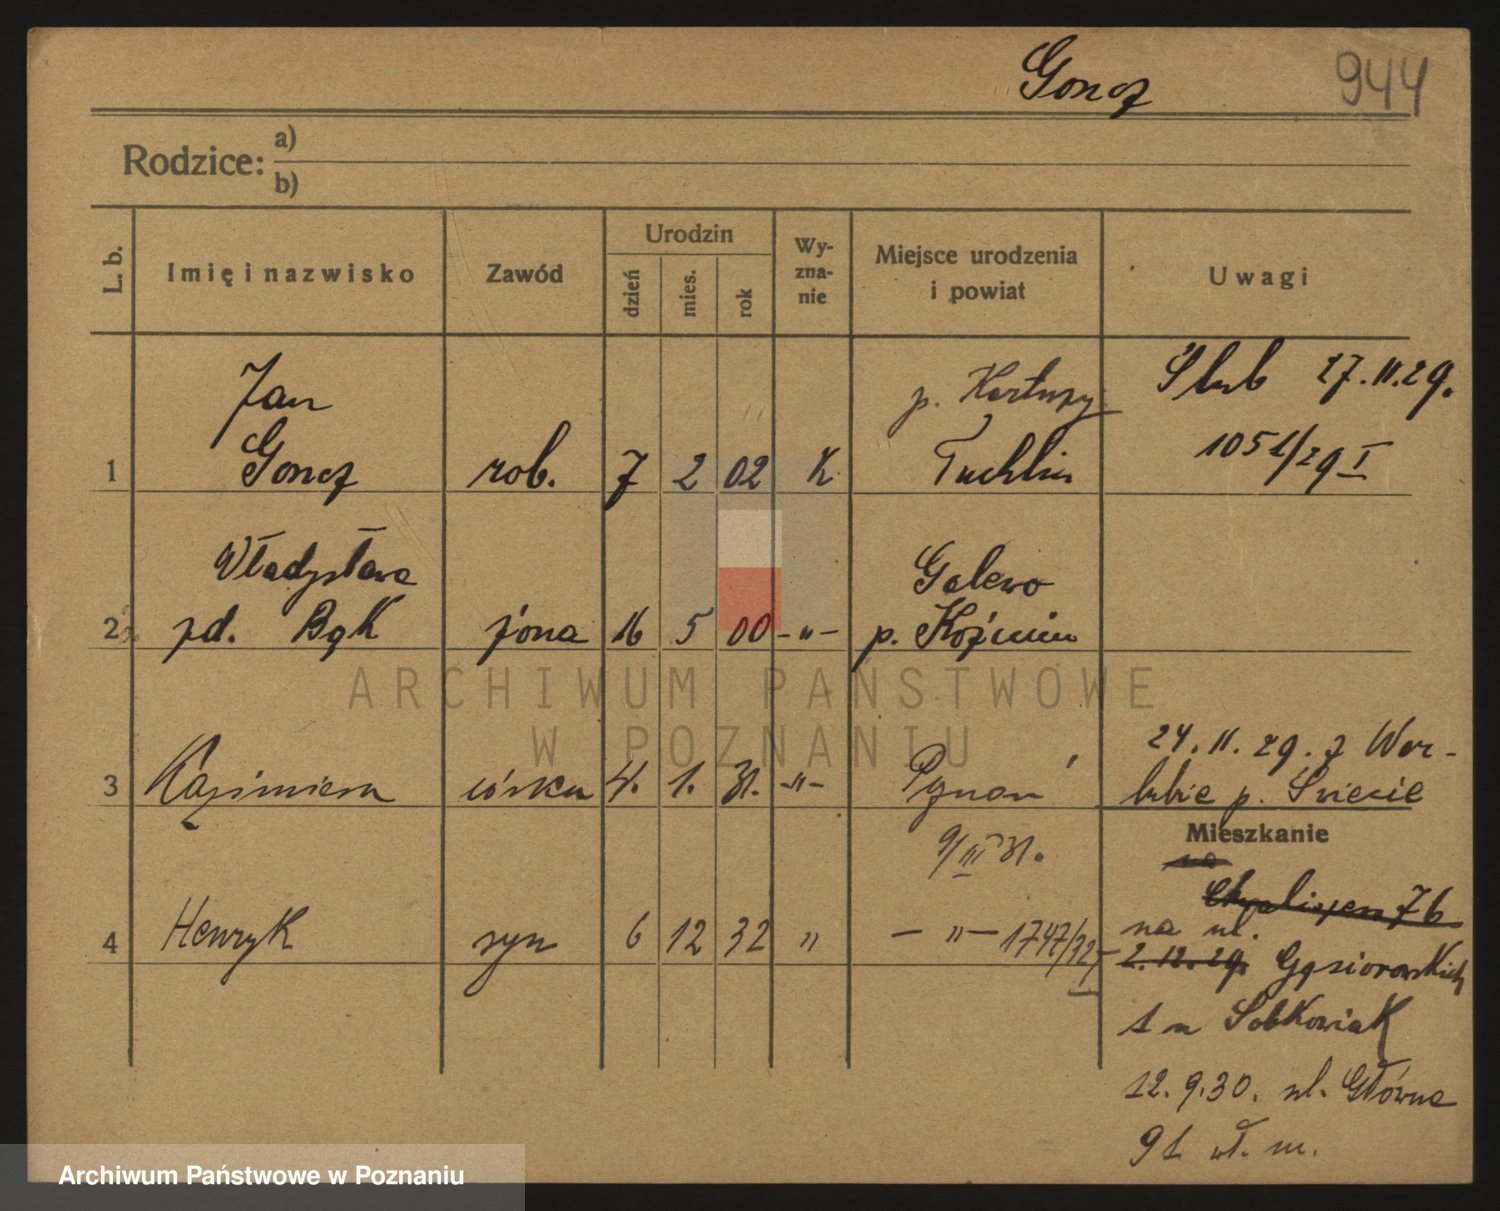 Goncz 944
Rodzice: a)
b)
L. b. Imię i nazwisko Zawód Urodzin dzień mies. rok Wy-zna-nie Miejsce urodzenia i powiat Uwagi
Jan p. Kartuzy Ślub 27.11.29.
1 Goncz rob. 7 2 02 K Tuchlin 1051/29 I
Władysława Galewo
2 zd. Bąk żona 16 5 00 -"- p. Koźmin
24. 11. 29. z War-
3 Kazimiera córka 4. 1. 31. -"- Poznań lubie p. Świecie
9/III 31. Mieszkanie
na
7b
na ul.
4 Henryk syn 6 12 32 " - " - 1747/32 2.12.29. Gąsiorowskich
1 u Sobkowiak
12.9.30. ul. Główna
91 wł. m.
ARCHIWUM PAŃSTWOWE
W POZNANIU
Archiwum Państwowe w Poznaniu